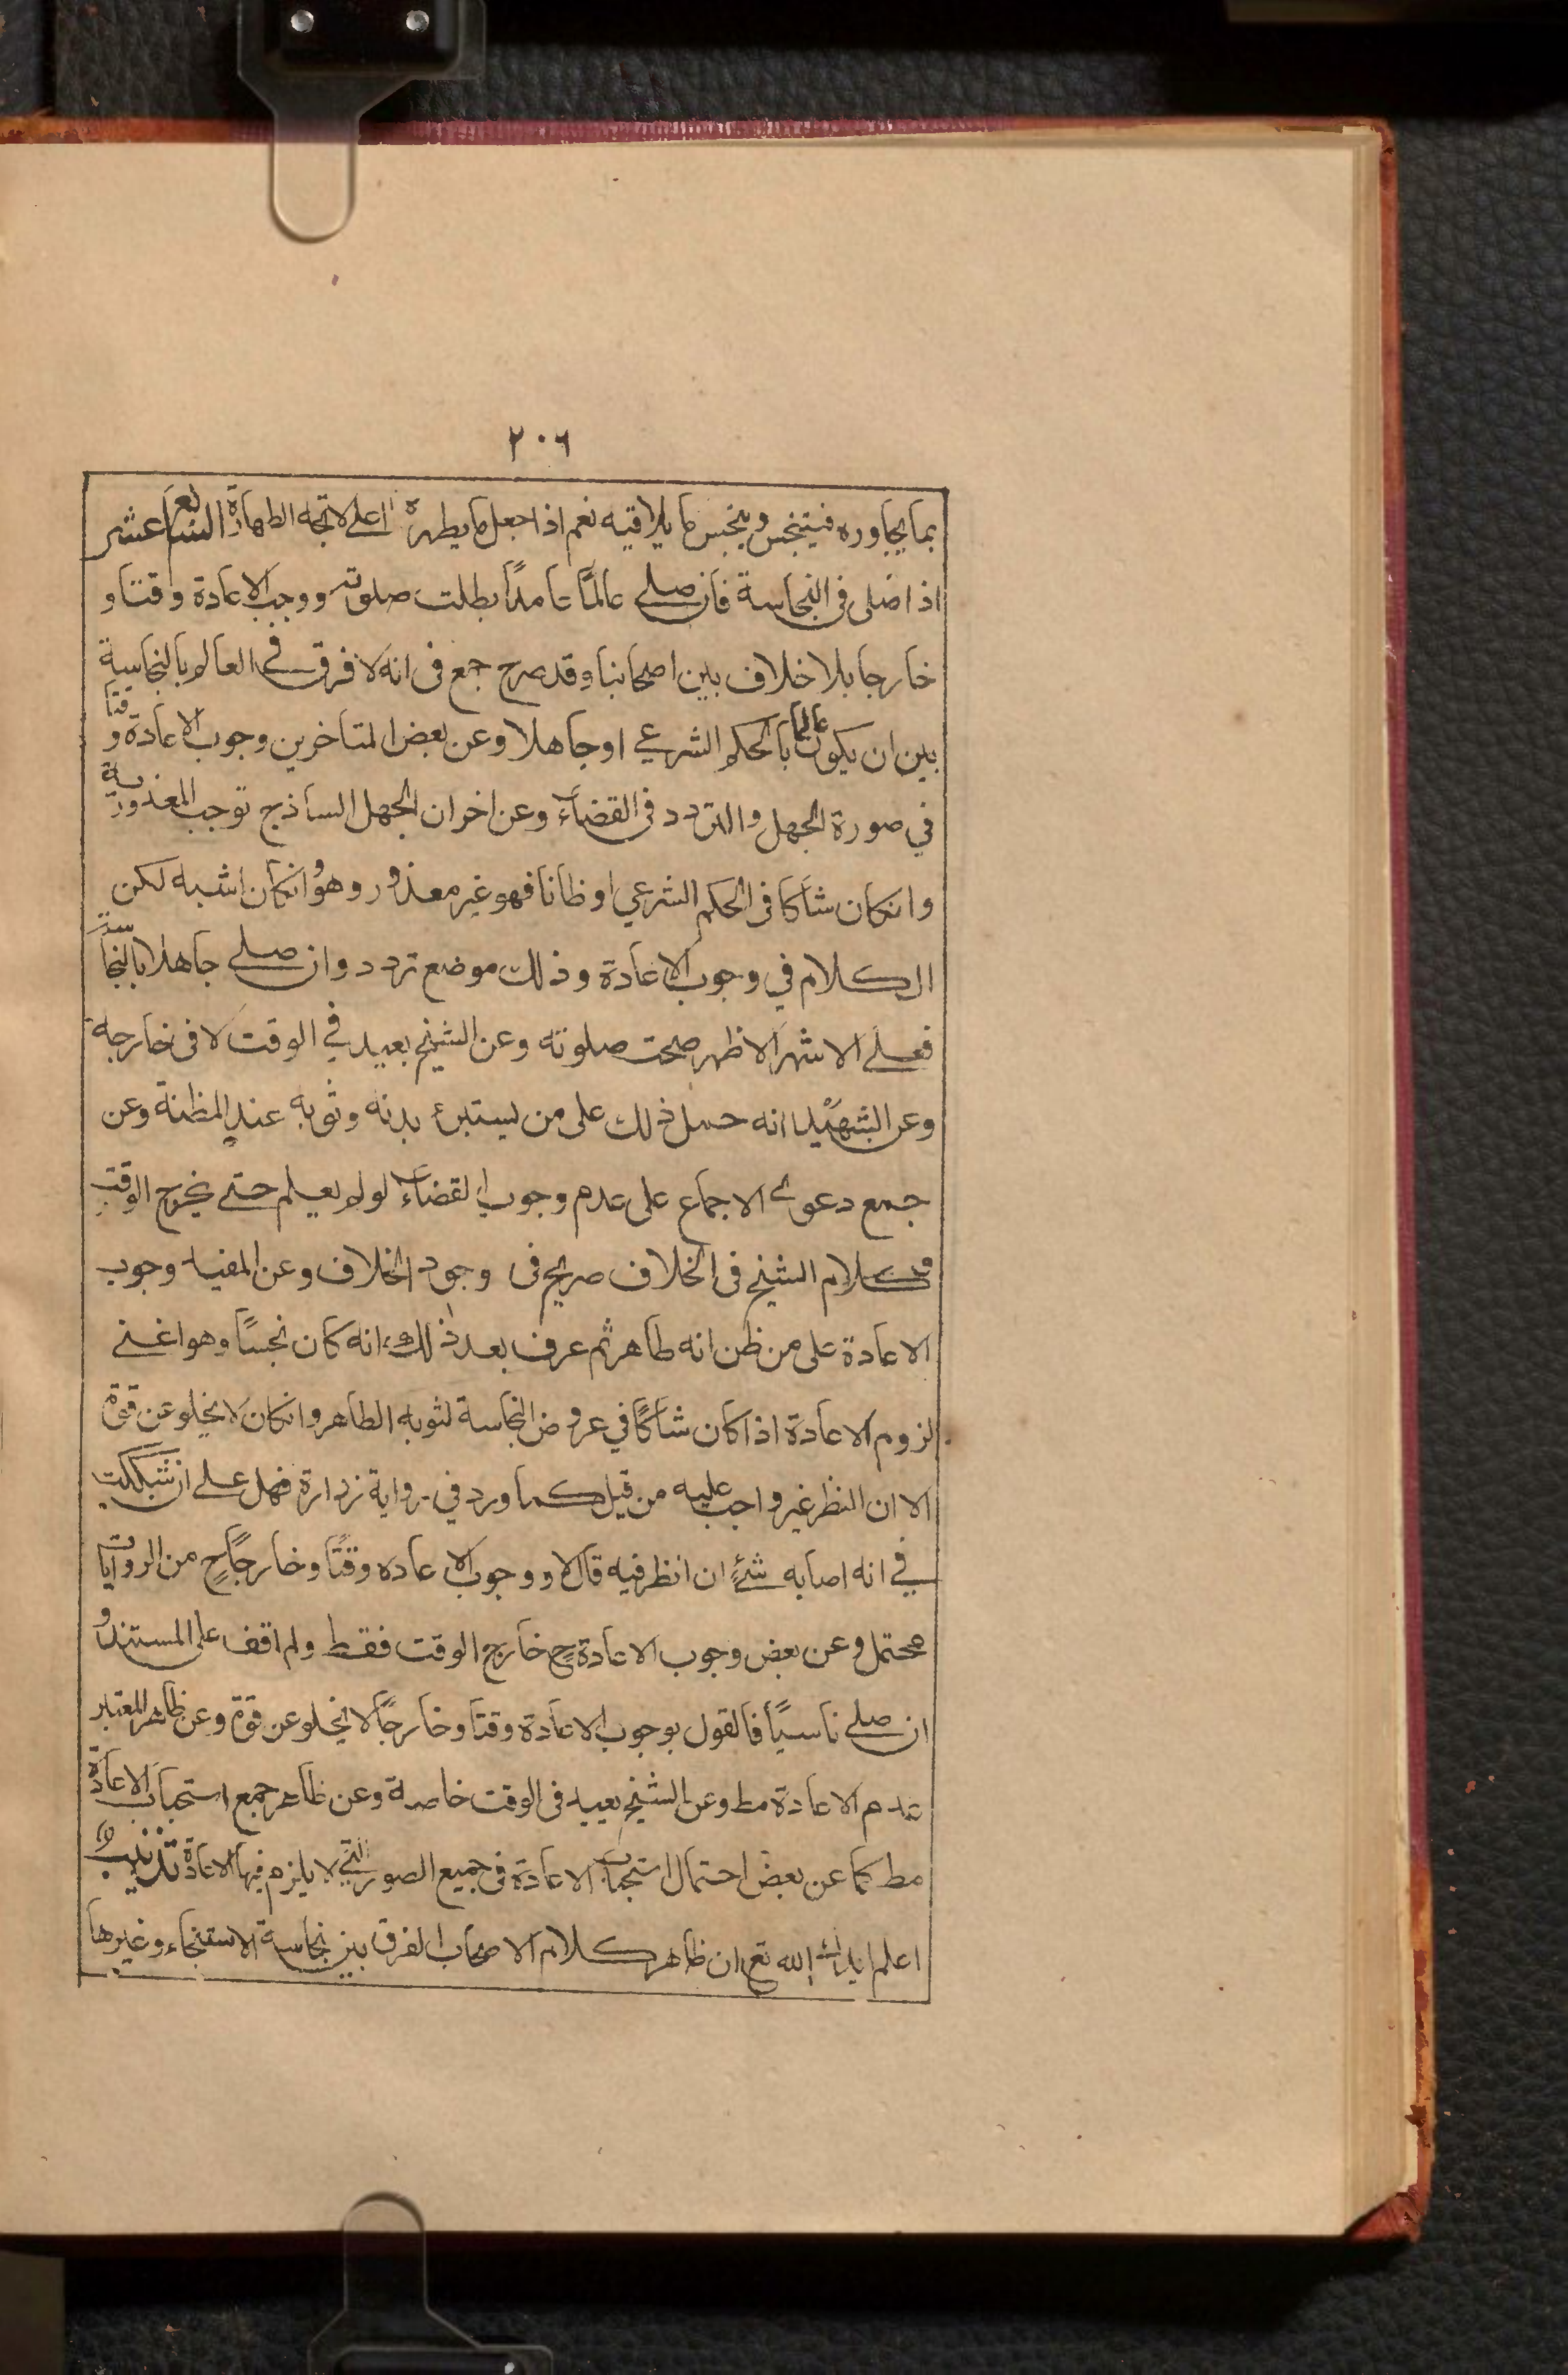 ٢٠٦
بما يجاوره فيتنجس وينجس ما يلاقيه نعم اذا جعل ما يطهره اعلى لاتجه الطهارة السابع عشر
اذا صلى فى النجاسة فان صلى عالمًا عامدًا بطلت صلوته ووجب الاعادة وقتا و
خارجا بلا خلاف بين اصحابنا وقد صرح جمع فى انه لا فرق فى العالم بالنجاسة
بين ان يكون عالما بالحكم الشرعي او جاهلا وعن بعض المتاخرين وجوب الاعادة وقتا
في صورة الجهل والتردد فى القضاء وعن اخر ان الجهل الساذج توجب المعذورية
وانكان شاكا فى الحكم الشرعي او ظانا فهو غير معذور وهو وانكان اشبه لكن
الكلام في وجوب الاعادة وذلك موضع تردد وان صلى جاهلا بالنجاسة
فعلى الاشهر الاظهر صحت صلوته وعن الشيخ يعيد في الوقت لا فى خارجه
وعن الشهيد انه حمل ذلك على من يستبرئ بدنه وثوبه عند المظنة وعن
جمع دعوى الاجماع على عدم وجوب القضاء لو لم يعلم حتى يخرج الوقت
وكلام الشيخ فى الخلاف صريح فى وجود الخلاف وعن المفيد وجوب
الاعادة على من ظن انه طاهر ثم عرف بعد ذلك انه كان نجسًا وهو اعنى
لزوم الاعادة اذا كان شاكًا في عروض النجاسة لثوبه الطاهر وانكان لا يخلو عن قوة
الا ان النظر غير واجب عليه من قبل كما ورد في رواية زرارة فهل على ان شككت
في انه اصابه شئ ان انظر فيه قال لا ووجوب الاعاده وقتًا وخارجًا ح من الروايات
محتمل وعن بعض وجوب الاعادة ح خارج الوقت فقط ولم اقف على المستند و
ان صلى ناسيًا فالقول بوجوب الاعادة وقتا وخارجًا لا يخلو عن قوة وعن ظاهر المعتبر
عدم الاعادة مط وعن الشيخ يعيد فى الوقت خاصة وعن ظاهر جمع استحباب الاعادة
مط كما عن بعض احتمال استحباب الاعادة فى جميع الصور التي لا يلزم فيها الاعادة تذنيب
اعلم ايدك الله تع ان ظاهر كلام الاصحاب الفرق بين نجاسة الاستنجاء وغيرها